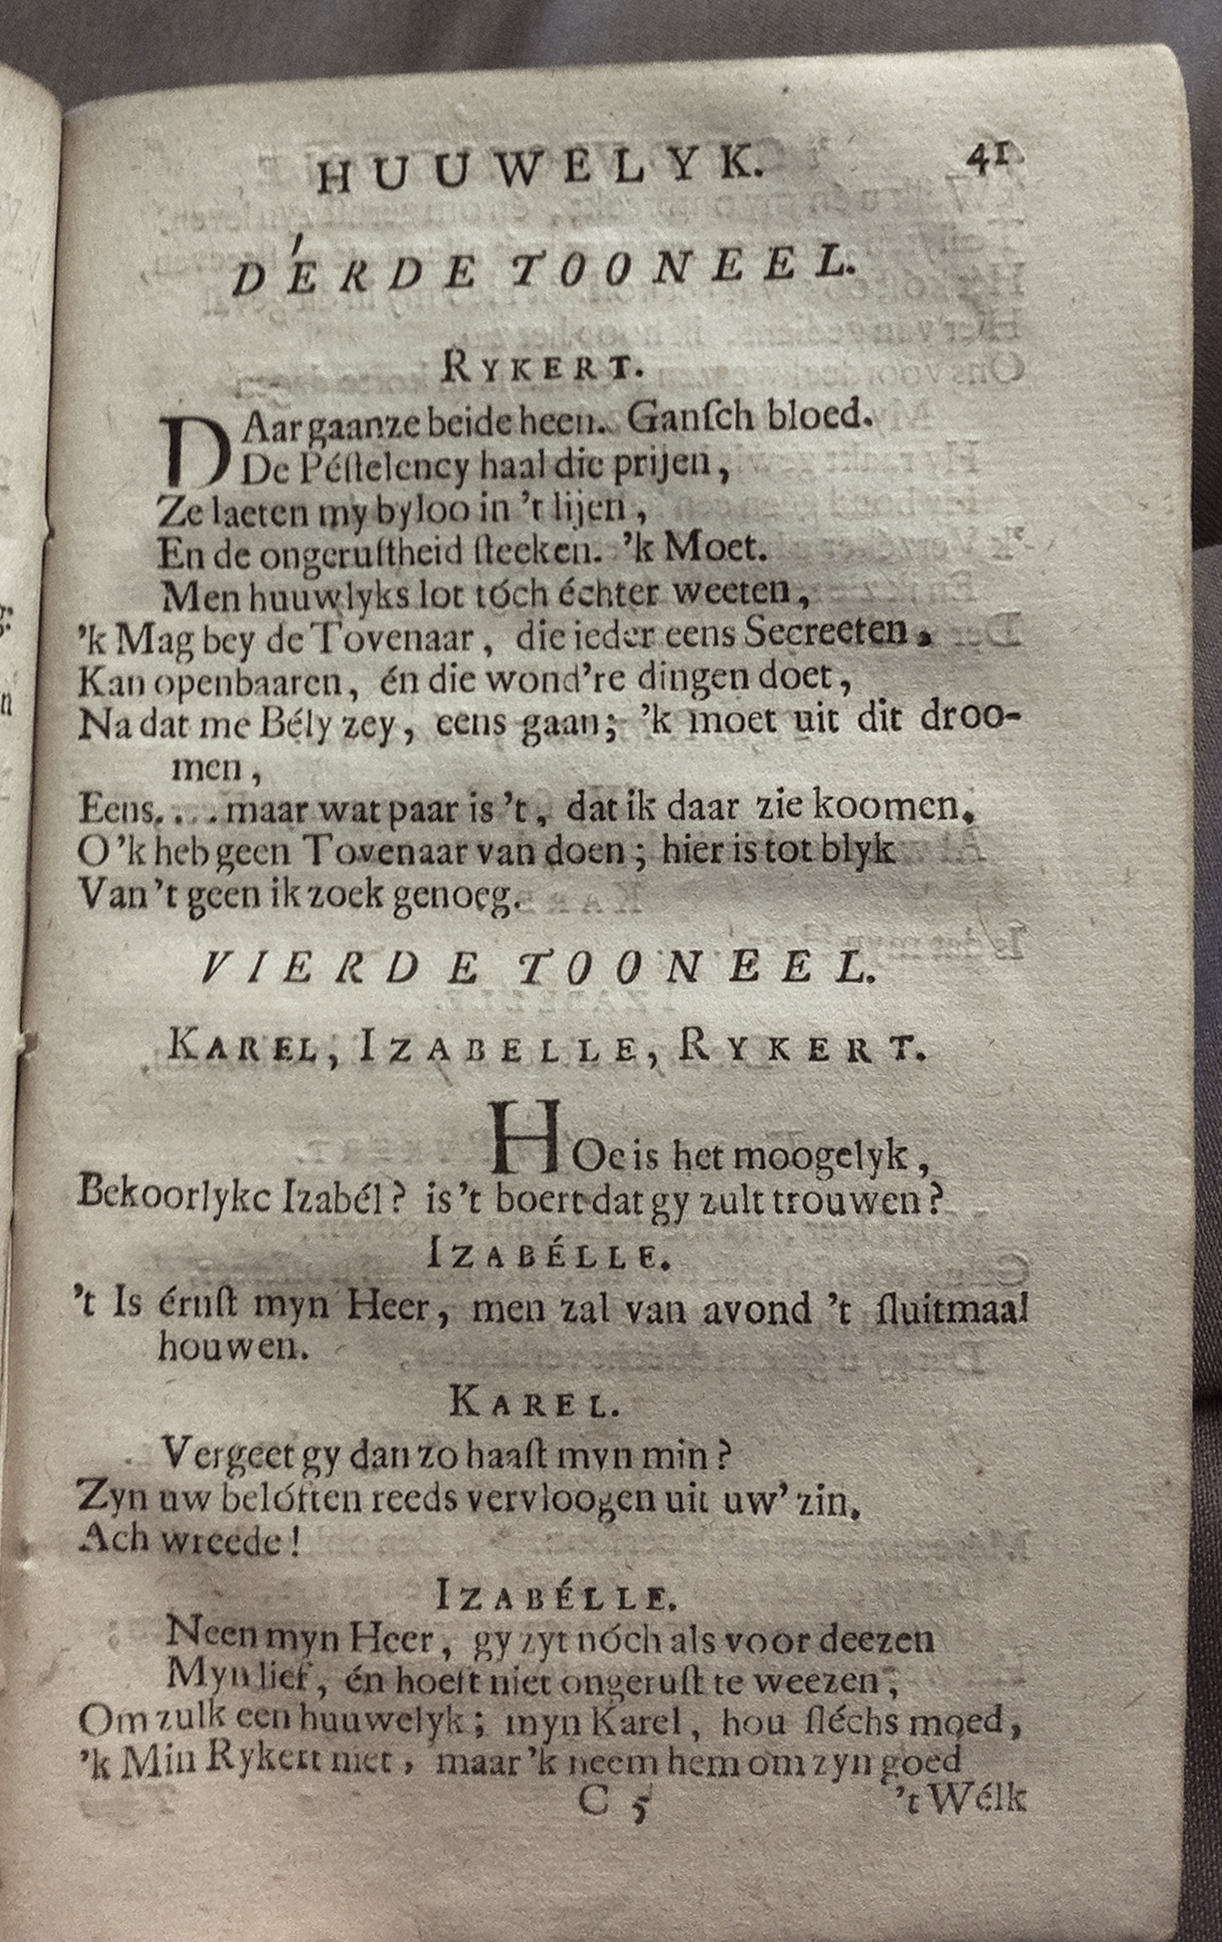 HUUWELYK. 41
DÉRDE TOONEEL.
RYKERT.
DAar gaanze beide heen. Ganſch bloed.
De Péſtelency haal die prijen,
Ze laeten my byloo in 't lijen,
En de ongeruſtheid ſteeken. 'k Moet.
Men huuwlyks lot tóch échter weeten,
'k Mag bey de Tovenaar, die ieder eens Secreeten.
Kan openbaaren, én die wond're dingen doet,
Na dat me Bély zey, eens gaan; 'k moet uit dit droo-
men,
Eens.... maar wat paar is 't, dat ik daar zie koomen.
O 'k heb geen Tovenaar van doen; hier is tot blyk
Van 't geen ik zoek genoeg.
VIERDE TOONEEL.
KAREL, IZABELLE, RYKERT.
HOe is het moogelyk,
Bekoorlyke Izabél? is 't boert dat gy zult trouwen?
IZABÉLLE.
't Is érnſt myn Heer, men zal van avond 't ſluitmaal
houwen.
KAREL.
Vergeet gy dan zo haaſt myn min?
Zyn uw belóften reeds vervloogen uit uw' zin.
Ach wreede!
IZABÉLLE.
Neen myn Heer, gy zyt nóch als voor deezen
Myn lief, én hoeft niet ongeruſt te weezen,
Om zulk een huuwelyk; myn Karel, hou ſléchs moed,
'k Min Rykert niet, maar 'k neem hem om zyn goed
C 5 't Wélk